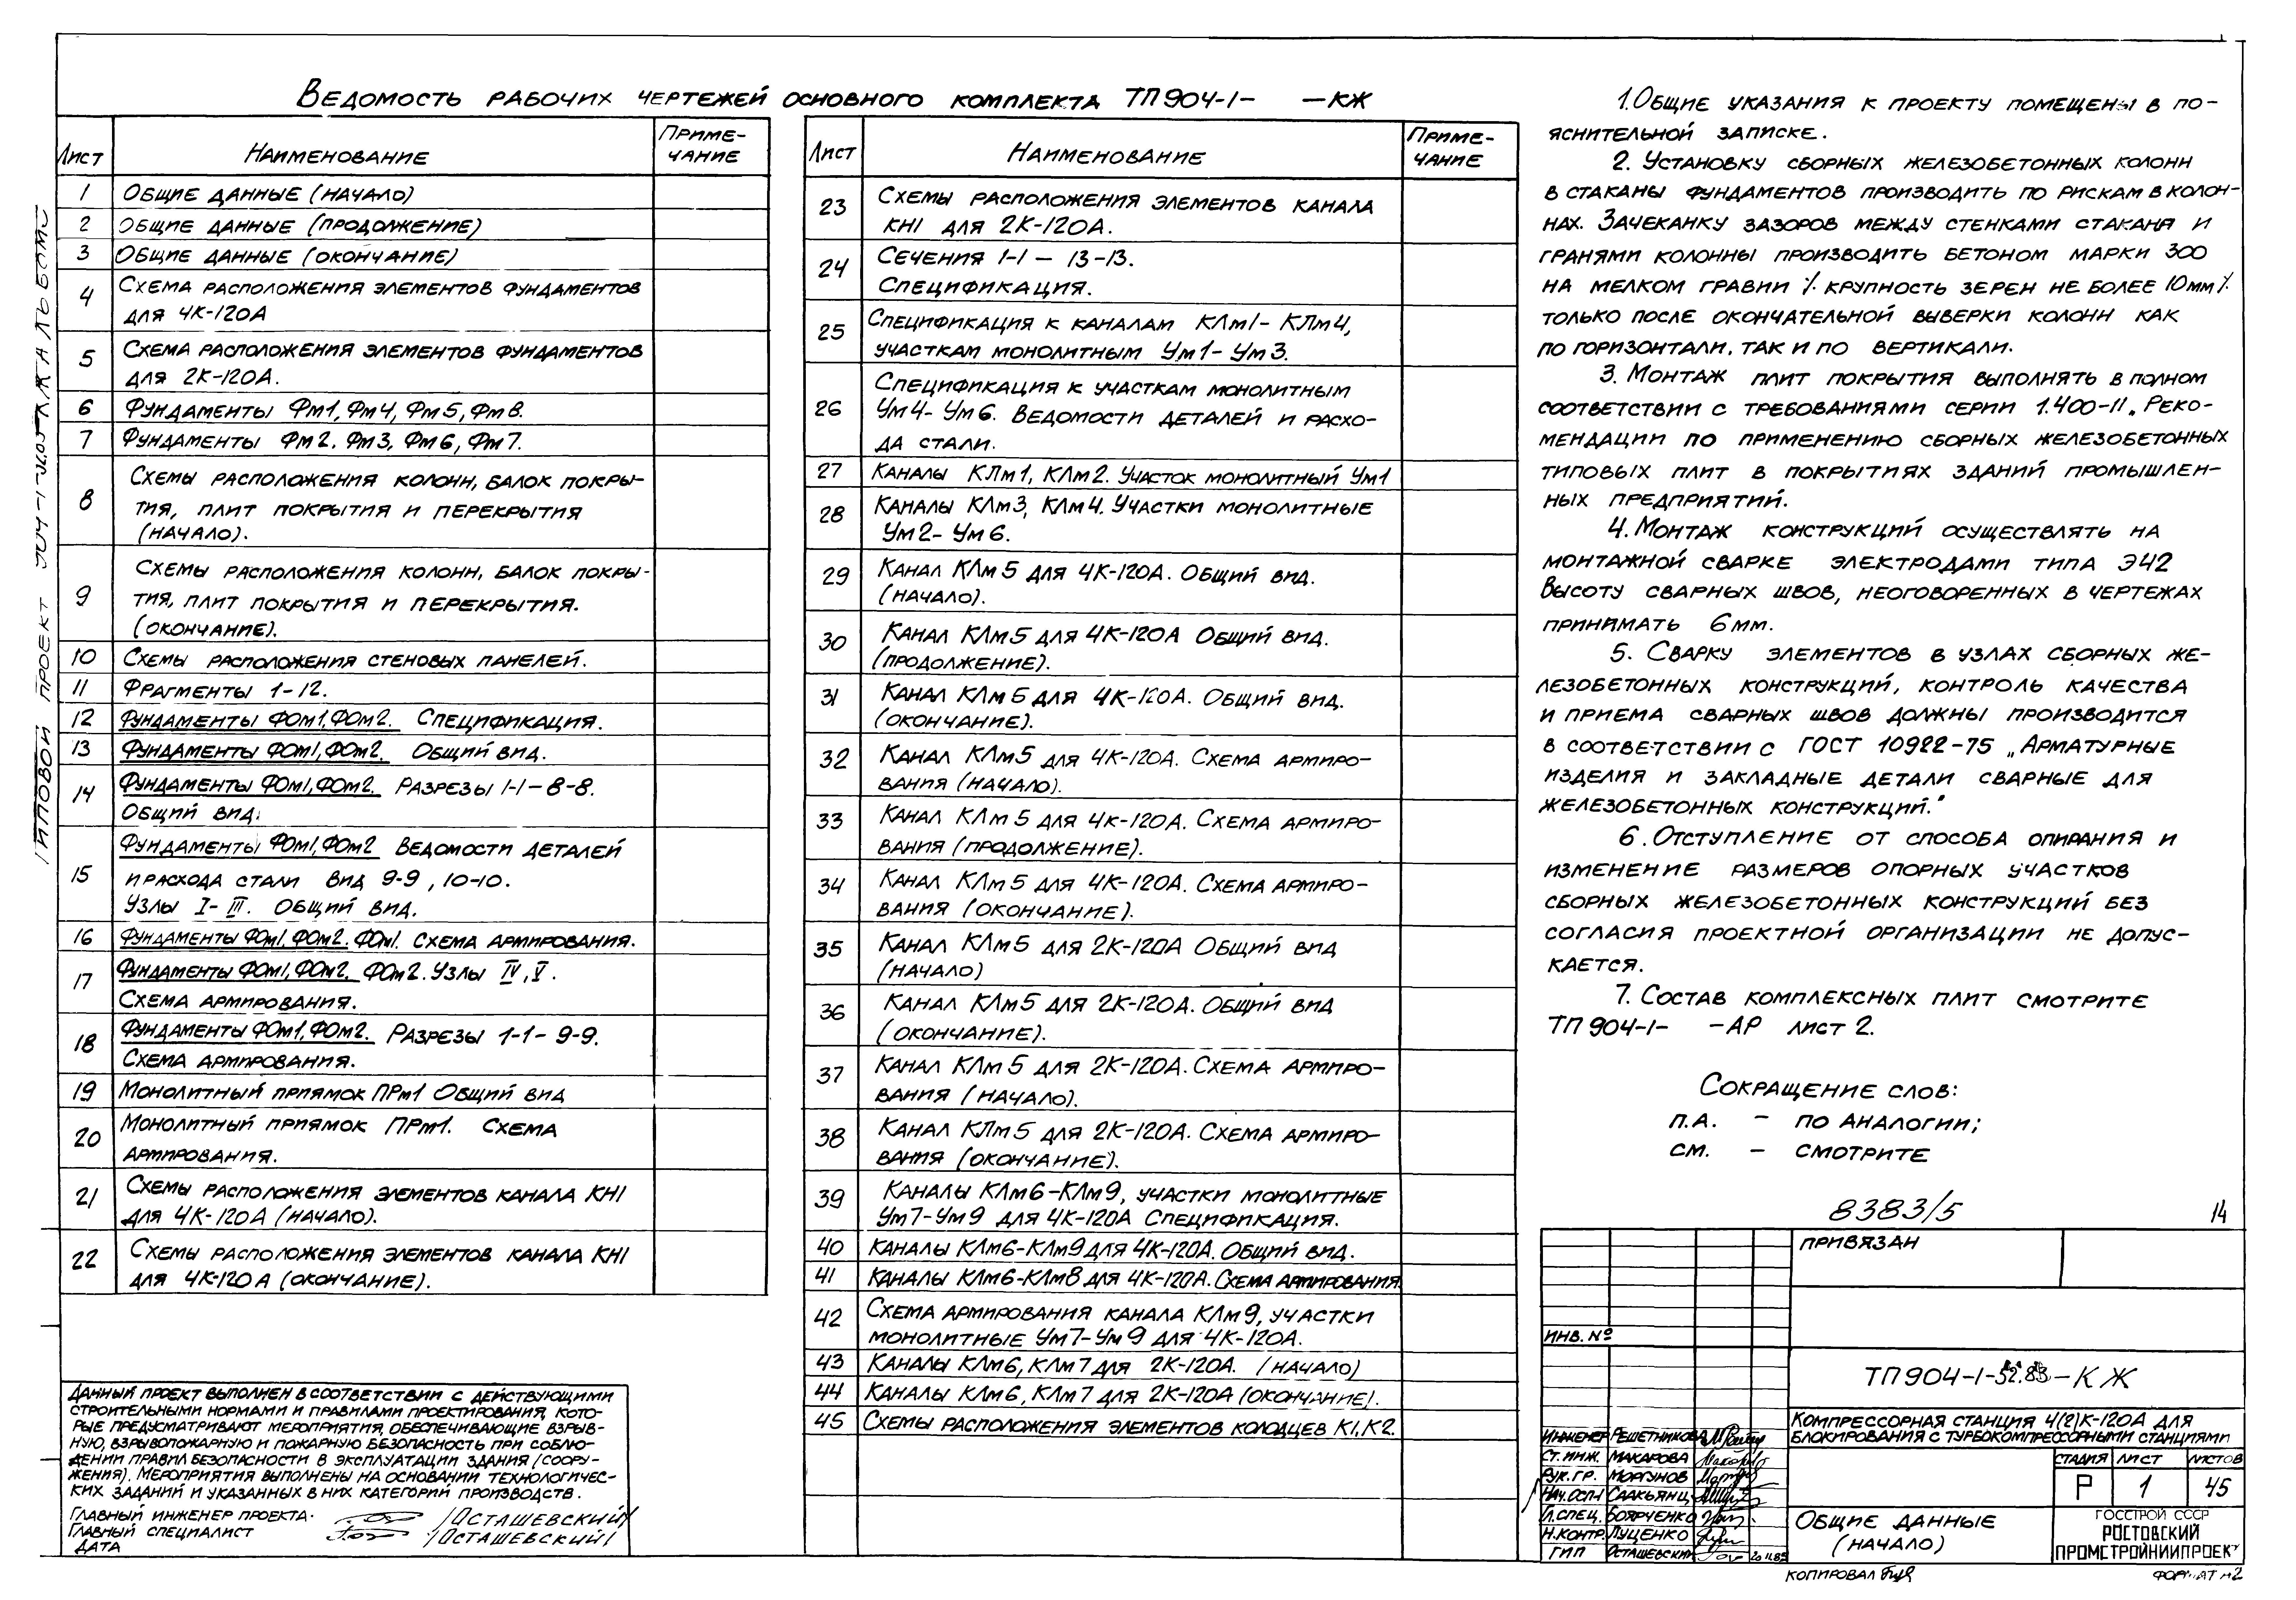 Ведомость рабочих чертежей основного комплекта ТП904-1- -КЖ
Лист Наименование Приме-
чание
1 Общие данные (начало)
2 Общие данные (продолжение)
3 Общие данные (окончание)
4 Схема расположения элементов фундаментов
для 4К-120А
5 Схема расположения элементов фундаментов
для 2К-120А.
6 Фундаменты Фм1, Фм4, Фм5, Фм8.
7 Фундаменты Фм2, Фм3, Фм6, Фм7.
8 Схемы расположения колонн, балок покры-
тия, плит покрытия и перекрытия
(начало).
9 Схемы расположения колонн, балок покры-
тия, плит покрытия и перекрытия.
(окончание).
10 Схемы расположения стеновых панелей.
11 Фрагменты 1-12.
12 Фундаменты ФОм1, ФОм2. Спецификация.
13 Фундаменты ФОм1, ФОм2. Общий вид.
14 Фундаменты ФОм1, ФОм2. Разрезы 1-1 – 8-8.
Общий вид.
15 Фундаменты ФОм1, ФОм2 Ведомости деталей
и расхода стали Вид 9-9, 10-10.
Узлы I-III. Общий вид.
16 Фундаменты ФОм1, ФОм2. ФОм1. Схема армирования.
17 Фундаменты ФОм1, ФОм2. ФОм2. Узлы IV, V.
Схема армирования.
18 Фундаменты ФОм1, ФОм2. Разрезы 1-1 - 9-9.
Схема армирования.
19 Монолитный приямок ПРм1 Общий вид
20 Монолитный приямок ПРм1. Схема
армирования.
21 Схемы расположения элементов канала КН1
для 4К-120А (начало).
22 Схемы расположения элементов канала КН1
для 4К-120А (окончание).
Лист Наименование Приме-
чание
23 Схемы расположения элементов канала
КН1 для 2К-120А.
24 Сечения 1-1 – 13-13.
Спецификация.
25 Спецификация к каналам КЛм1- КЛм4,
участкам монолитным Ум1- Ум3.
26 Спецификация к участкам монолитным
Ум4- Ум6. Ведомости деталей и расхо-
да стали.
27 Каналы КЛм1, КЛм2. Участок монолитный Ум1
28 Каналы КЛм3, КЛм4. Участки монолитные
Ум2- Ум6.
29 Канал КЛм5 для 4К-120А. Общий вид.
(начало).
30 Канал КЛм5 для 4К-120А Общий вид.
(продолжение).
31 Канал КЛм5 для 4К-120А. Общий вид.
(окончание).
32 Канал КЛм5 для 4К-120А. Схема армиро-
вания (начало).
33 Канал КЛм5 для 4К-120А. Схема армиро-
вания (продолжение).
34 Канал КЛм5 для 4К-120А. Схема армиро-
вания (окончание).
35 Канал КЛм5 для 2К-120А Общий вид
(начало)
36 Канал КЛм5 для 2К-120А. Общий вид
(окончание).
37 Канал КЛм5 для 2К-120А. Схема армиро-
вания (начало).
38 Канал КЛм5 для 2К-120А. Схема армиро-
вания (окончание).
39 Каналы КЛм6-КЛм9, участки монолитные
Ум7-Ум9 для 4К-120А Спецификация.
40 Каналы КЛм6-КЛм9 для 4К-120А. Общий вид.
41 Каналы КЛм6-КЛм8 для 4К-120А. Схема армирования.
42 Схема армирования канала КЛм9, участки
монолитные Ум7-Ум9 для 4К-120А.
43 Каналы КЛм6, КЛм7 для 2К-120А. (начало)
44 Каналы КЛм6, КЛм7 для 2К-120А (окончание).
45 Схемы расположения элементов колодцев К1, К2.
1. Общие указания к проекту помещены в по-
яснительной записке.
2. Установку сборных железобетонных колонн
в стаканы фундаментов производить по рискам в колон-
нах. Зачеканку зазоров между стенками стакана и
гранями колонны производить бетоном марки 300
на мелком гравии /. крупность зерен не более 10мм /.
только после окончательной выверки колонн как
по горизонтали, так и по вертикали.
3. Монтаж плит покрытия выполнять в полном
соответствии с требованиями серии 1.400-11 „Реко-
мендации по применению сборных железобетонных
типовых плит в покрытиях зданий промышлен-
ных предприятий.
4. Монтаж конструкций осуществлять на
монтажной сварке электродами типа Э42
Высоту сварных швов, неоговоренных в чертежах
принимать 6мм.
5. Сварку элементов в узлах сборных же-
лезобетонных конструкций, контроль качества
и приема сварных швов должны производится
в соответствии с ГОСТ 10922-75 „Арматурные
изделия и закладные детали сварные для
железобетонных конструкций."
6. Отступление от способа опирания и
изменение размеров опорных участков
сборных железобетонных конструкций без
согласия проектной организации не допус-
кается.
7. Состав комплексных плит смотрите
ТП904-1- -АР лист 2.
Сокращение слов:
п.а. – по аналогии;
см. – смотрите
8383/5 14
Данный проект выполнен в соответствии с действующими
строительными нормами и правилами проектирования, кото-
рые предусматривают мероприятия, обеспечивающие взрыв-
ную, взрывопожарную и пожарную безопасность при соблю-
дении правил безопасности в эксплуатации здания (соору-
жения). Мероприятия выполнены на основании технологичес-
ких заданий и указанных в них категорий производств.
Главный инженер проекта. /Осташевский/
Главный специалист /Осташевский/
Дата
Привязан
Инв. №
ТП904-1-52.83-КЖ
Компрессорная станция 4(2)К-120А для
блокирования с турбокомпрессорными станциями
Инженер Решетникова
Ст. инж. Макарова
Рук. гр. Моргунов
Нач. осп-1 Саакьянц
Гл. спец. Боярченко
Н. контр. Луценко
ГИП Осташевский
Стадия Лист Листов
Р 1 45
Общие данные
(начало)
Госстрой СССР
Ростовский
Промстройниипроект
Копировал
Формат А2
Типовой проект
Альбом 5